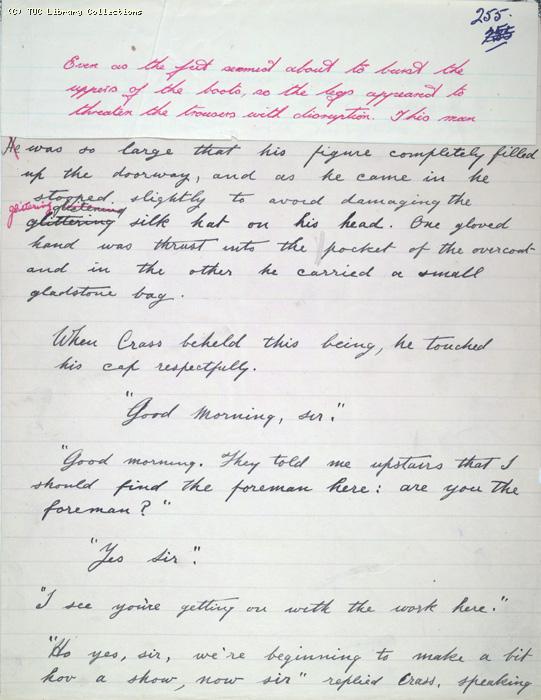 (C) TUC Library Collections
255.
255
Even as the feet seemed about to burst the
uppers of the boots, so the legs appeared to
threaten the trousers with disruption. This man
He was so large that his figure completely filled
up the doorway, and as he came in he
stooped slightly to avoid damaging the
glittering glistening
glittering silk hat on his head. One gloved
hand was thrust into the pocket of the overcoat
and in the other he carried a small
gladstone bag.
When Crass beheld this being, he touched
his cap respectfully.
"Good morning, sir."
"Good morning. They told me upstairs that I
should find the foreman here: are you the
foreman?"
"Yes sir."
"I see you're getting on with the work here."
"Ho yes, sir, we're beginning to make a bit
hov a show, now sir" replied Crass, speaking